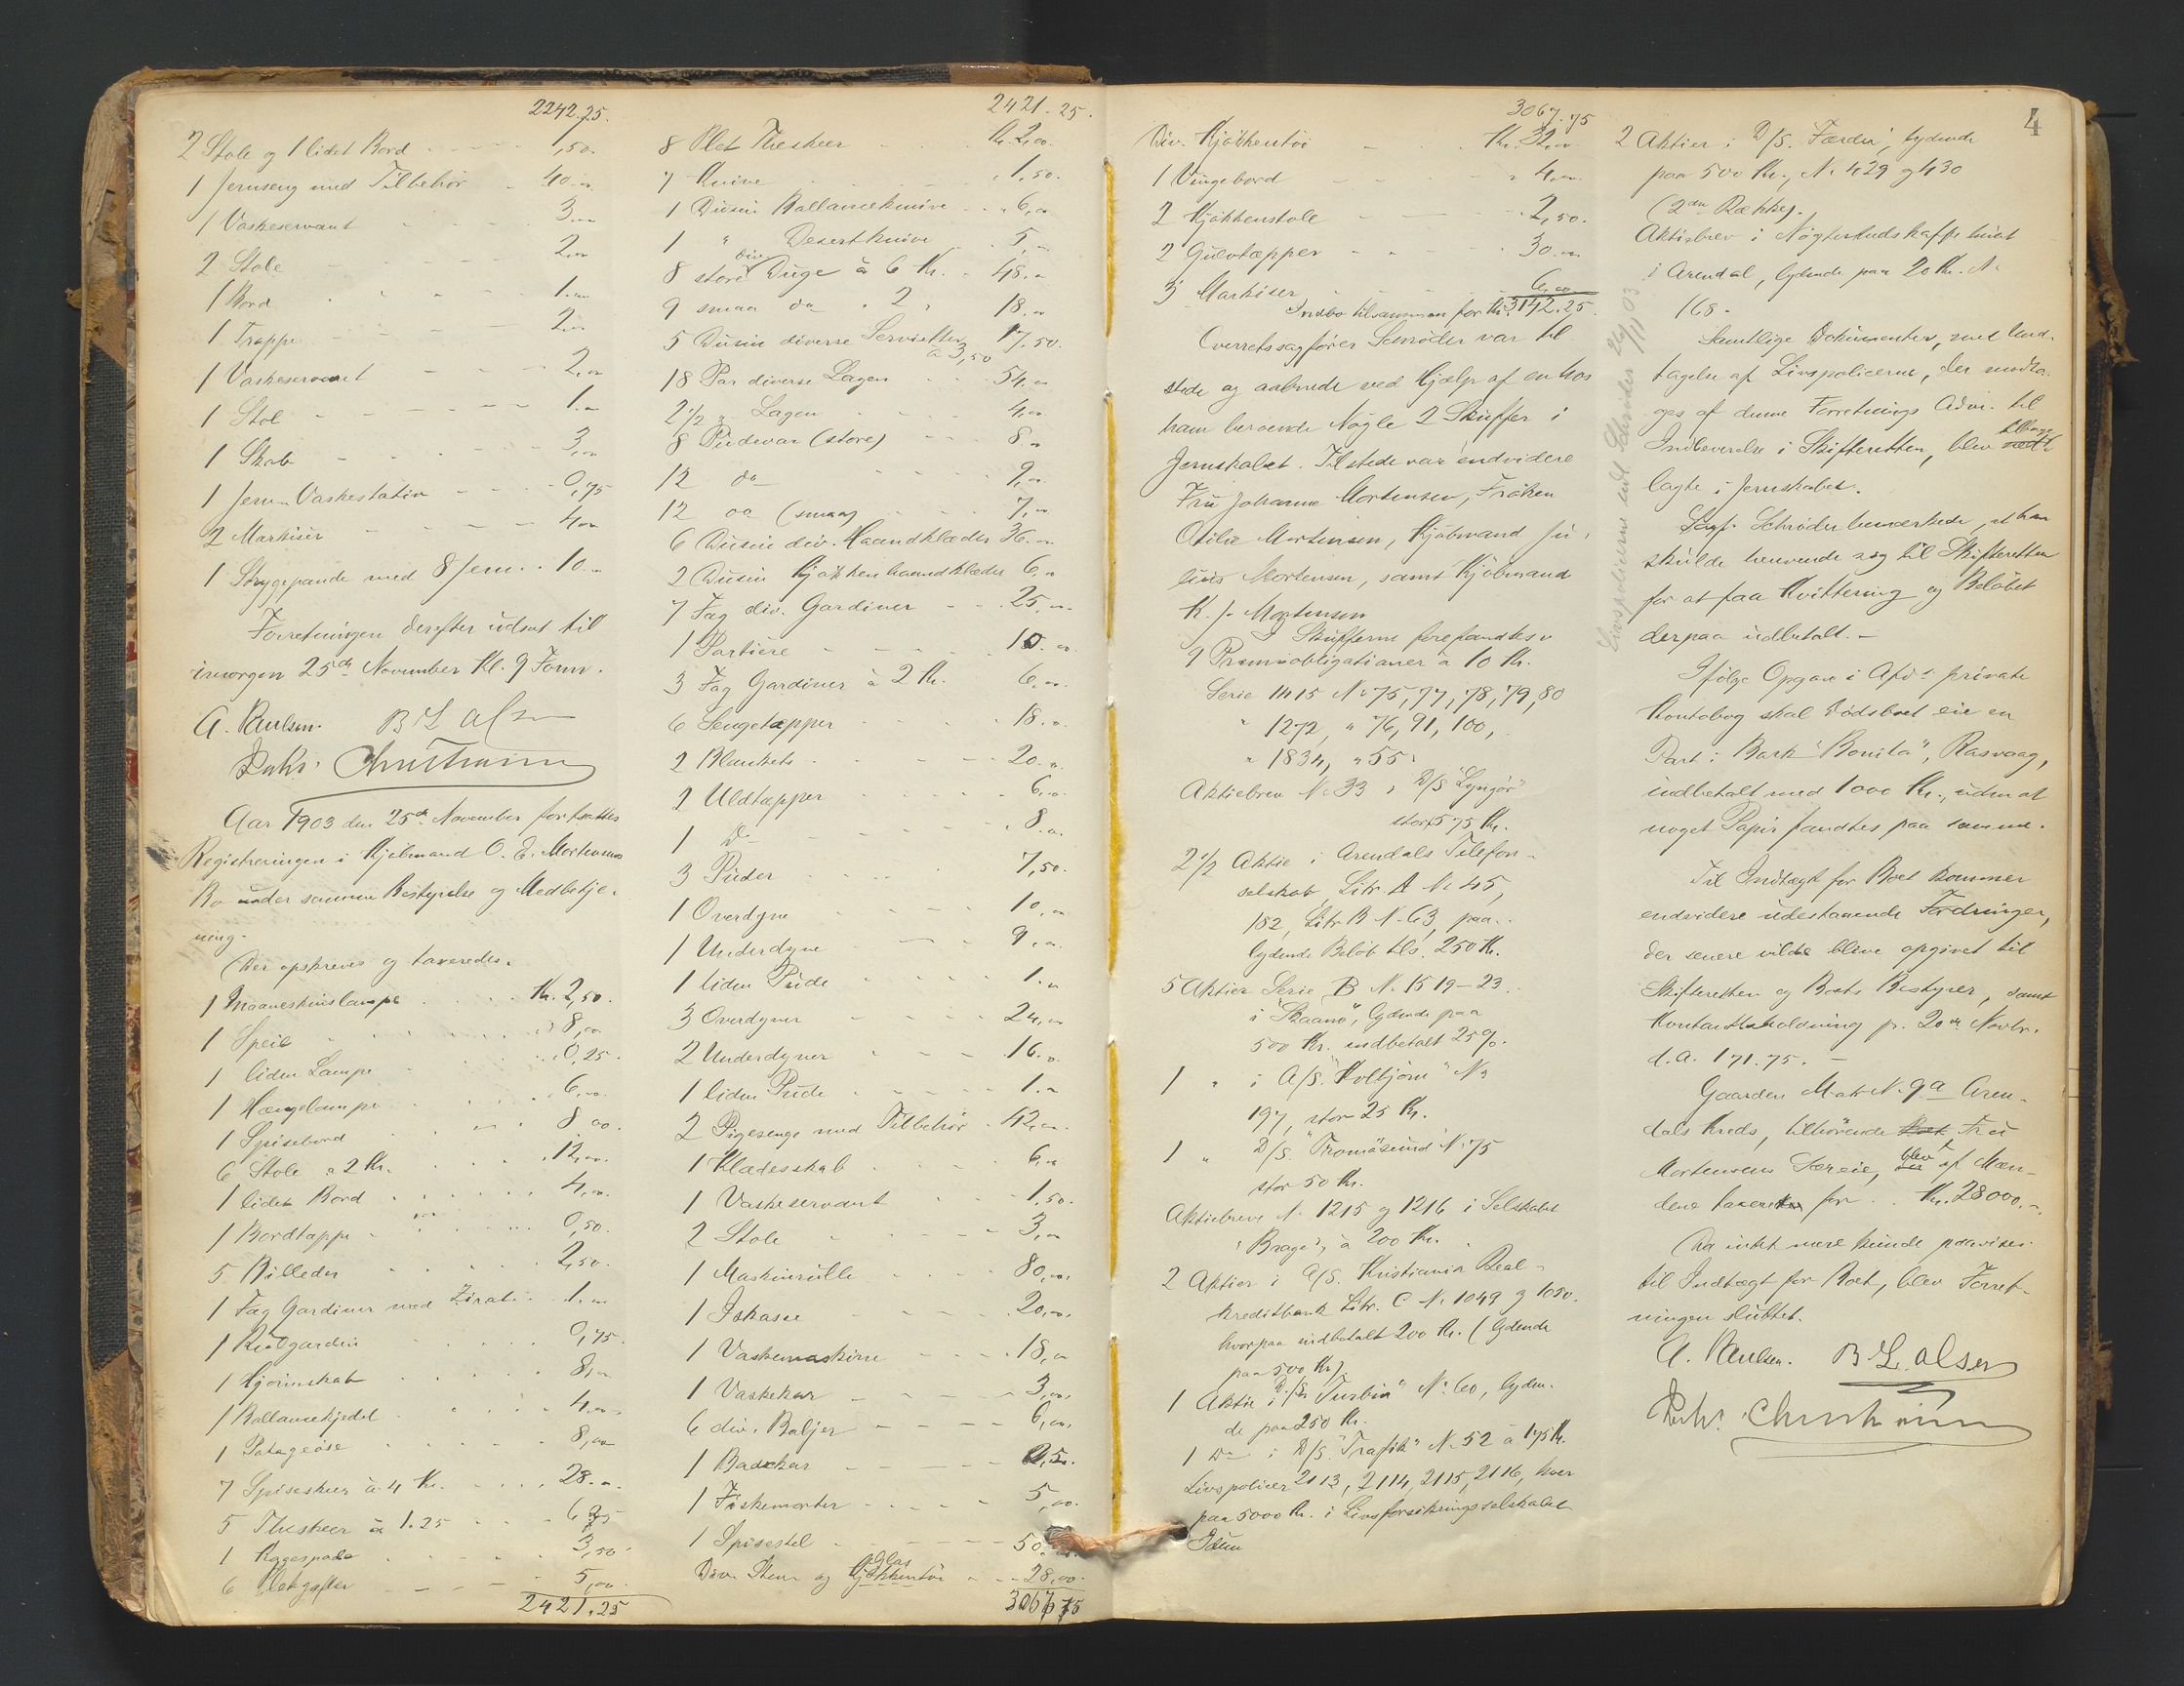 2242.75.
2 Stole og 1 lidet Bord 1,50.
1 Jernseng med Tilbehør 40.00
1 Vaskeservant 3.00
2 Stole 2.00
1 Bord 1.00
1 Trappe 2.00
1 Vaskeservant 2.00
1 Stol 1.00
1 Skab 3.00
1 Jern-Vaskestativ 0,75
2 Markiser 4.00
1 Strygepande med 8 Jern 10.00
Forretningen derefter udsat til
imorgen 25de November Kl. 9 Form.
A. Paulsen. B L Olsen
Lars. Christensen
Aar 1903 den 25de November fortsattes
Registreringen i Kjøbmand O. E. Mortensens
Bo under samme Bestyrelse og Medbetje-
ning.
Der opskreves og taxeredes.
1 Maaneskinslampe Kr. 2,50.
1 Speil 8,00
1 liden Lampe 0,25.
1 Hængelampe 6,00.
1 Spisebord 8,00.
6 Stole a 2 Kr. 12,00.
1 lidet Bord 4,00.
1 Bordtæppe 0,50.
5 Billeder 2,50.
1 Fag Gardiner med Zirat 1.00
1 Rulgardin 0,75.
1 Hjørneskab 8,00
1 Ballancekjedel 4.00
1 Potageøse 8,00
7 Spiseskeer à 4 Kr. 28.00
5 Theskeer à 1.25 6.25
1 Kagespade 3,50
6 Pletgafler 5,00.
2421.25
2421.25.
8 Plet Theskeer Kr. 2,00.
7 Knive 1,50.
1 Dusin Ballanceknive 6,00
1 " Desertknive 5,00
8 store div. Duge à 6 Kr. 48.00
9 smaa do " 2 " 18.00
5 Dusin diverse Servietter à 3,50 17,50.
18 Par diverse Lagen 54,00
2 1/2 " Lagen 4,00
8 Pudevar (store) 8.00
12 do 9,00
12 do (smaa) 7,00
6 Dusin div. Haandklæder 36.00
2 Dusin Kjøkkenhaandklæder 6,00
7 Fag div. Gardiner 25,00
1 Portiere 10.00
3 Fag Gardiner à 2 Kr. 6,00
6 Sengetæpper 18.00
2 Blankets 20.00
2 Uldtæpper 6.00
1 Do 8.00
3 Puder 7,50.
1 Overdyne 10,00
1 Underdyne 9.00
1 liden Pude 1.00
3 Overdyner 24,00
2 Underdyner 16.00
1 liden Pude 1.00
2 Pigesenge med Tilbehør 42,00
1 Klædesskab 6,00
1 Vaskeservant 1,50.
2 Stole 3,00
1 Maskinrulle 80,00.
1 Iskasse 20,00.
1 Vaskemaskine 18,00
1 Vaskekar 3,00.
6 div. Baljer 6,00.
1 Badekar
1 Fiskemorter 5,00.
1 Spisestel 50.00.
Div. Stentøi og Glas 28,00.
3067.75
3067.75
Div. Kjøkkentøi Kr. 32,00
1 Vingebord " 4,00
2 Kjøkkenstole 2,50.
2 Gulvtæpper 30.00
3 Markiser 6,00
Indbo tilsammen for Kr. 3142.25.
Overretssagfører Schrøder var til
stede og aabnede ved Hjælp af en hos
ham beroende Nøgle 2 Skuffer i
Jernskabet. Tilstede var endvidere
Fru Johanne Mortensen, Frøken
Otilie Mortensen, Kjøbmand Ju-
lius Mortensen, samt Kjøbmand
K. J. Mortensen
I Skufferne forefandtes:
9 Præmieobligationer à 10 Kr.
Serie 1415 No 75, 77, 78, 79, 80
" 1272, " 76, 91, 100,
" 1834, " 55.
Aktiebrev No 33 i D/S "Lyngør"
stort 575 Kr.
2 1/2 Aktie i Arendals Telefon-
selskab, Litr. A No 45,
182, Litr. B No 63, paa-
lydende Beløb tils. 250 Kr.
5 Aktier Serie B No 1519-23
i "Skaanø", lydende paa
500 Kr. indbetalt 25%.
1 " i A/S. "Kolbjørn" No
197, stor 25 Kr.
1 " D/S. "Tromøsund" No 75
stor 50 Kr.
Aktiebreve No 1215 og 1216 i Selskabet
"Brage", à 200 Kr.
2 Aktier i A/S. Kristiania Real-
kreditbank Litr. C No 1049 og 1050.
hvorpaa indbetalt 200 Kr. (lydende
paa 500 Kr.)
1 Aktie i D/S "Turbin" No 60, lyden-
de paa 250 Kr.
1 Do i D/S. "Trafik" No 52 a 175 Kr.
Livspolicer 2113, 2114, 2115, 2116, hver
paa 5000 Kr. i Livsforsikringsselskabet
Idun
Livspolicerne udl. Schrøder 26/11 03
4
2 Aktier i D/S. "Færder", lydende
paa 500 Kr., No 429 og 430
(2den Række).
Aktiebrev i
i Arendal, lydende paa 20 Kr. No
168.
Samtlige Dokumenter, med Und-
tagelse af Livspolicerne, der modto-
ges af denne Forretnings Adm. til
Indleverelse i Skifteretten, blev tilbage-
lagte i Jernskabet.
Sagf. Schrøder bemærkede, at han
skulde henvende sig til Skifteretten
for at faa Kvittering og Beløbet
derpaa udbetalt.-
Ifølge Opgave i Afd.s private
Kontobog skal Dødsboet eie en
Part i Bark "Bonita", Rasvaag,
indbetalt med 1000 Kr., uden at
noget Papir fandtes paa samme.
Til Indtægt for Boet kommer
endvidere udestaaende Fordringer,
der senere vilde blive opgivet til
Skifteretten og Boets Bestyrer, samt
Kontantbeholdning pr. 20de Novbr.
d.a. 171.75. -
Gaarden Matr. No 9a Aren-
dals Kreds, tilhørende Fru
Mortensens Særeie, blev af Mæn-
dene taxeret for Kr. 28000.-
Da intet mere kunde paavises
til Indtægt for Boet, blev Forret-
ningen sluttet.
A. Paulsen. B L Olsen
Lars. Christensen